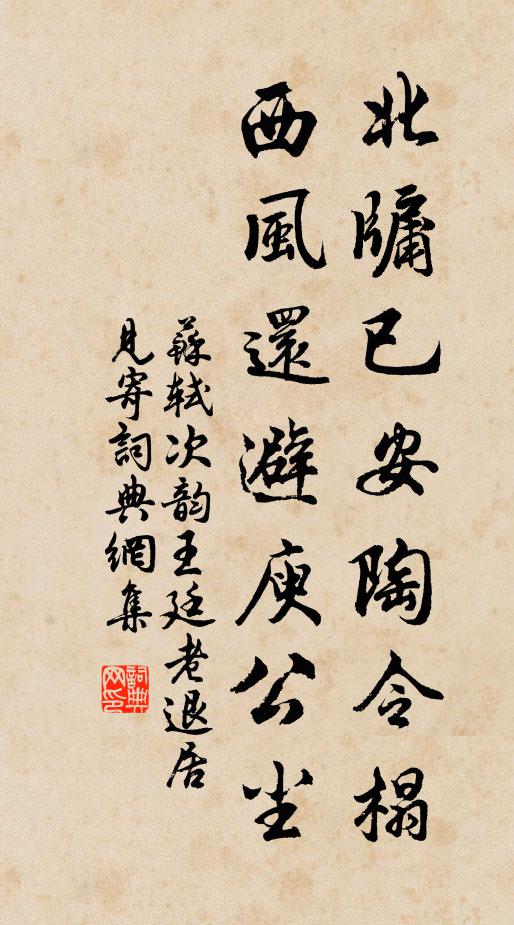 北牖已安陶令榻
西風還避庾公尘
蘇軾次韵王廷老退居
見寄詞典網集
詞典
网印